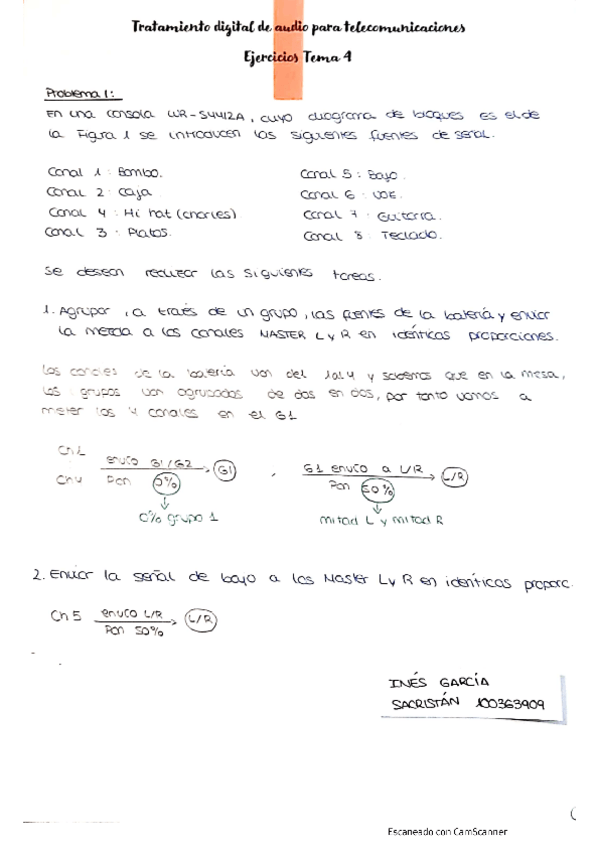 Tratamiento digital de audio para telecomunicaciones
Ejercicios Tema 4
Problema 1:
En una consola WR-S4412A, cuyo diagrama de bloques es el de
la Figura 1 se introducen las siguientes fuentes de señal.
Canal 1 : Bombo.
Canal 5 : Bajo.
Canal 2 : Caja
Canal 6 : VOZ.
Canal 4 : Hi hat (charles)
Canal 7 : Guitarra.
Canal 3 : Platos.
Canal 8 : Teclado.
Se desean realizar las siguientes tareas.
1. Agrupar, a través de un grupo, las fuentes de la batería y enviar
la mezcla a los canales MASTER L y R en idénticas proporciones.
Los canales de la batería van del 1 al 4 y sabemos que en la mesa,
los grupos van agrupados de dos en dos, por tanto vamos a
meter los 4 canales en el G1
Ch1
envío G1/G2
G1
,
G1 envío a L/R
L/R
Ch4
Pan 0%
Pan 50%
0% grupo 1
mitad L y mitad R
2. Enviar la señal de bajo a los Master L y R en idénticas proporc.
Ch 5
envío L/R
L/R
Pan 50%
INÉS GARCÍA
SACRISTÁN 100363909
Escaneado con CamScanner